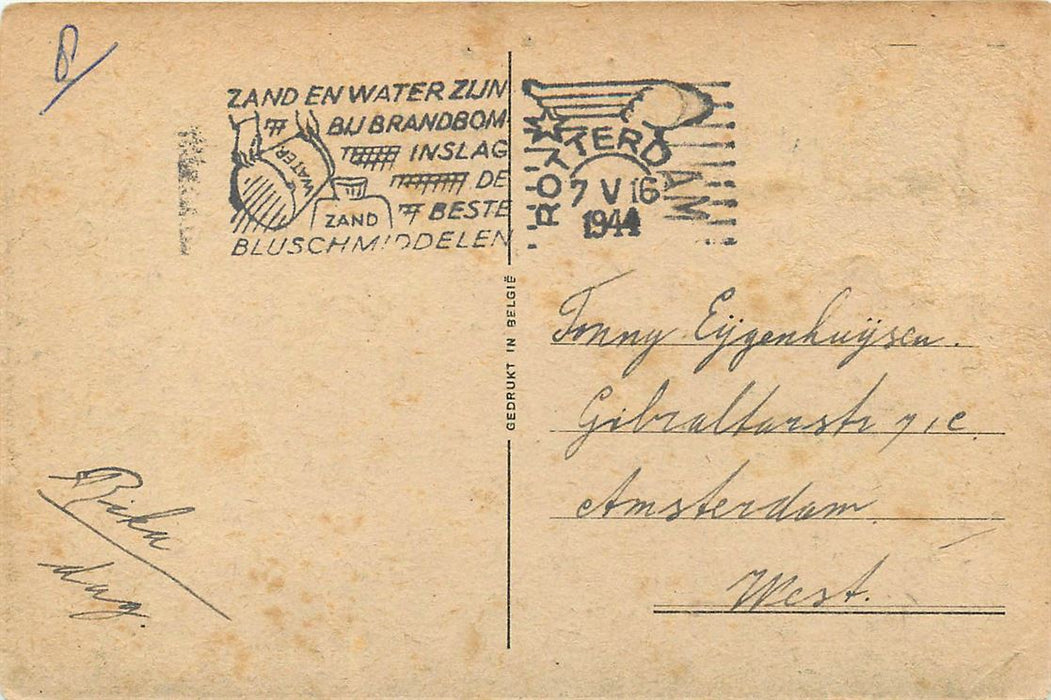 8
ZAND EN WATER ZIJN
BIJ BRANDBOM
INSLAG
DE
BESTE
BLUSCHMIDDELEN
WATER
ZAND
ROTTERDAM
7 V 16
1944
GEDRUKT IN BELGIË
Tonny Eÿgenhuÿsen.
Gibraltarstr 71c
Amsterdam.
West.
Rika
dag.